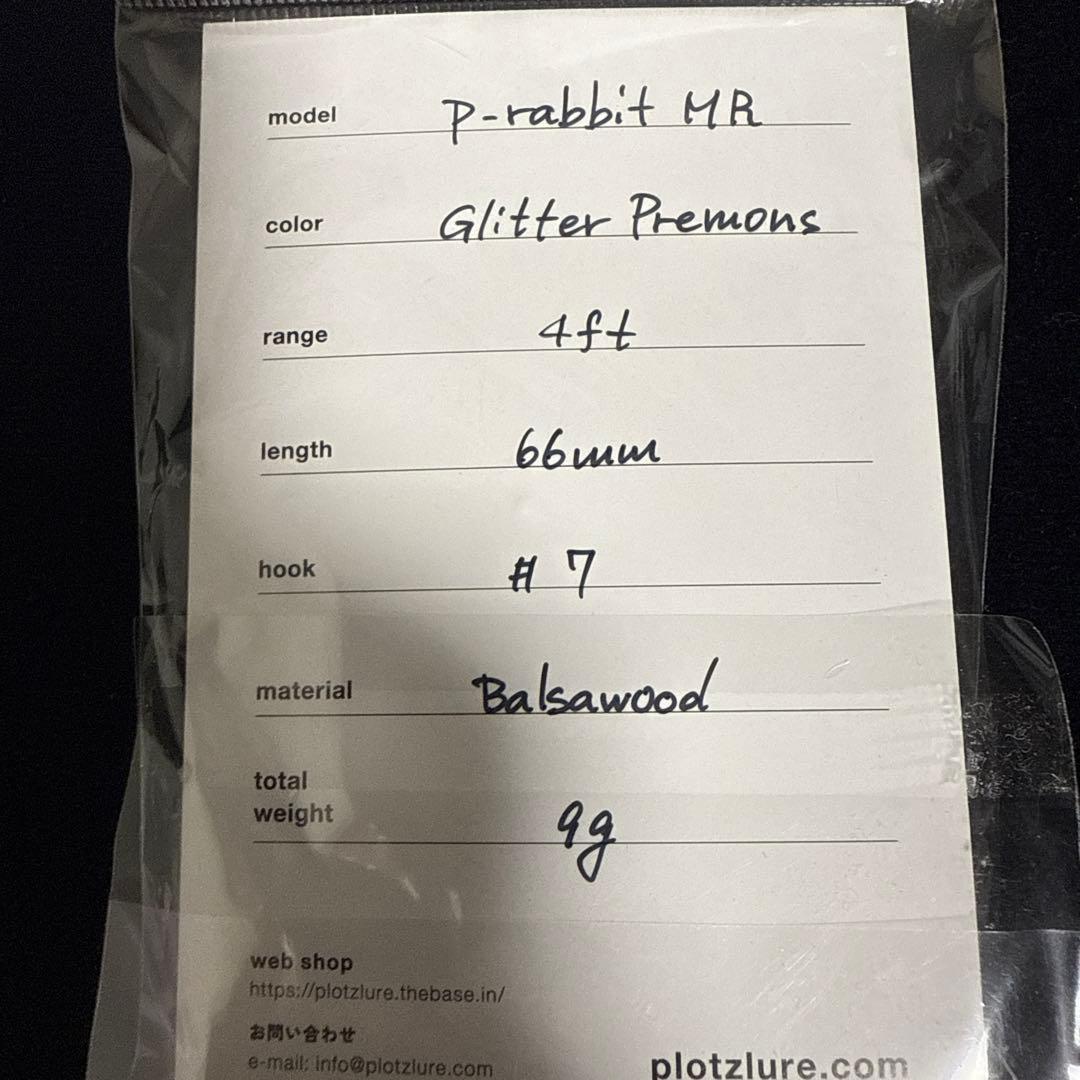 model P-rabbit MR
color Glitter Premons
range 4ft
length 66mm
hook #7
material Balsawood
total
weight 9g
web shop
https://plotzlure.thebase.in/
お問い合わせ
e-mail: info@plotzlure.com
plotzlure.com